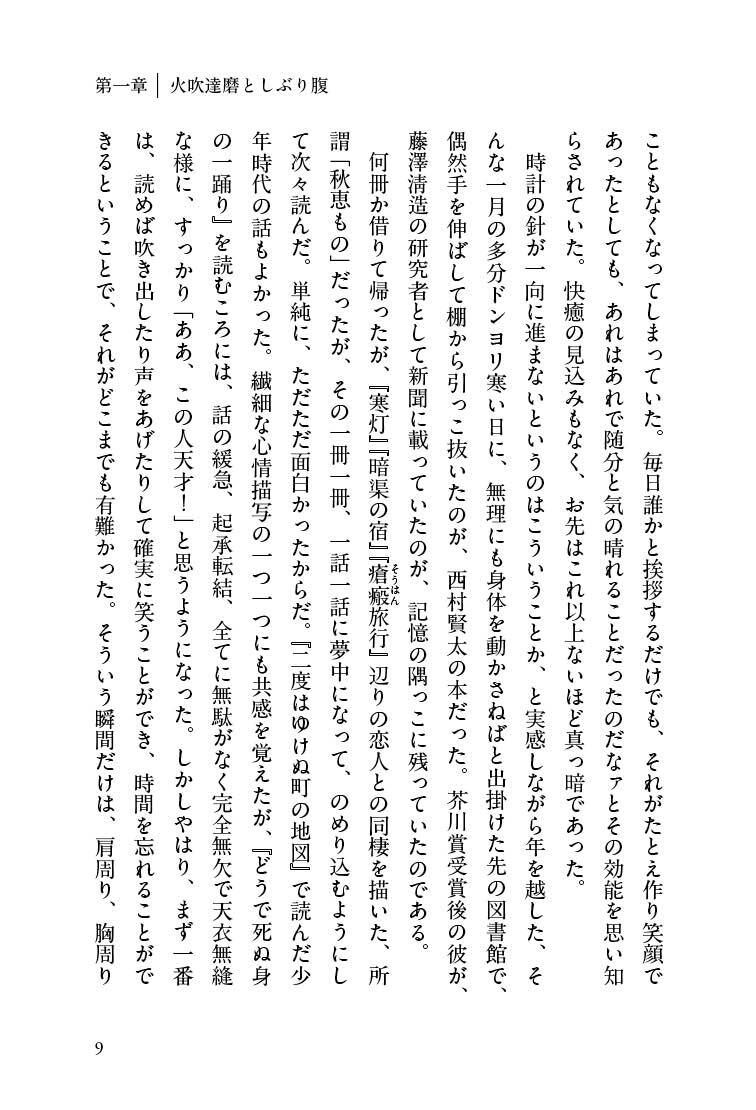 第一章｜火吹達磨としぶり腹
こともなくなってしまっていた。毎日誰かと挨拶するだけでも、それがたとえ作り笑顔で
あったとしても、あれはあれで随分と気の晴れることだったのだなァとその効能を思い知
らされていた。快癒の見込みもなく、お先はこれ以上ないほど真っ暗であった。
時計の針が一向に進まないというのはこういうことか、と実感しながら年を越した、そ
んな一月の多分ドンヨリ寒い日に、無理にも身体を動かさねばと出掛けた先の図書館で、
偶然手を伸ばして棚から引っこ抜いたのが、西村賢太の本だった。芥川賞受賞後の彼が、
藤澤淸造の研究者として新聞に載っていたのが、記憶の隅っこに残っていたのである。
何冊か借りて帰ったが、『寒灯』『暗渠の宿』『瘡瘢旅行』辺りの恋人との同棲を描いた、所
そうはん
謂「秋恵もの」だったが、その一冊一冊、一話一話に夢中になって、のめり込むようにし
て次々読んだ。単純に、ただただ面白かったからだ。『二度はゆけぬ町の地図』で読んだ少
年時代の話もよかった。繊細な心情描写の一つ一つにも共感を覚えたが、『どうで死ぬ身
の一踊り』を読むころには、話の緩急、起承転結、全てに無駄がなく完全無欠で天衣無縫
な様に、すっかり「ああ、この人天才！」と思うようになった。しかしやはり、まず一番
は、読めば吹き出したり声をあげたりして確実に笑うことができ、時間を忘れることがで
きるということで、それがどこまでも有難かった。そういう瞬間だけは、肩周り、胸周り
9